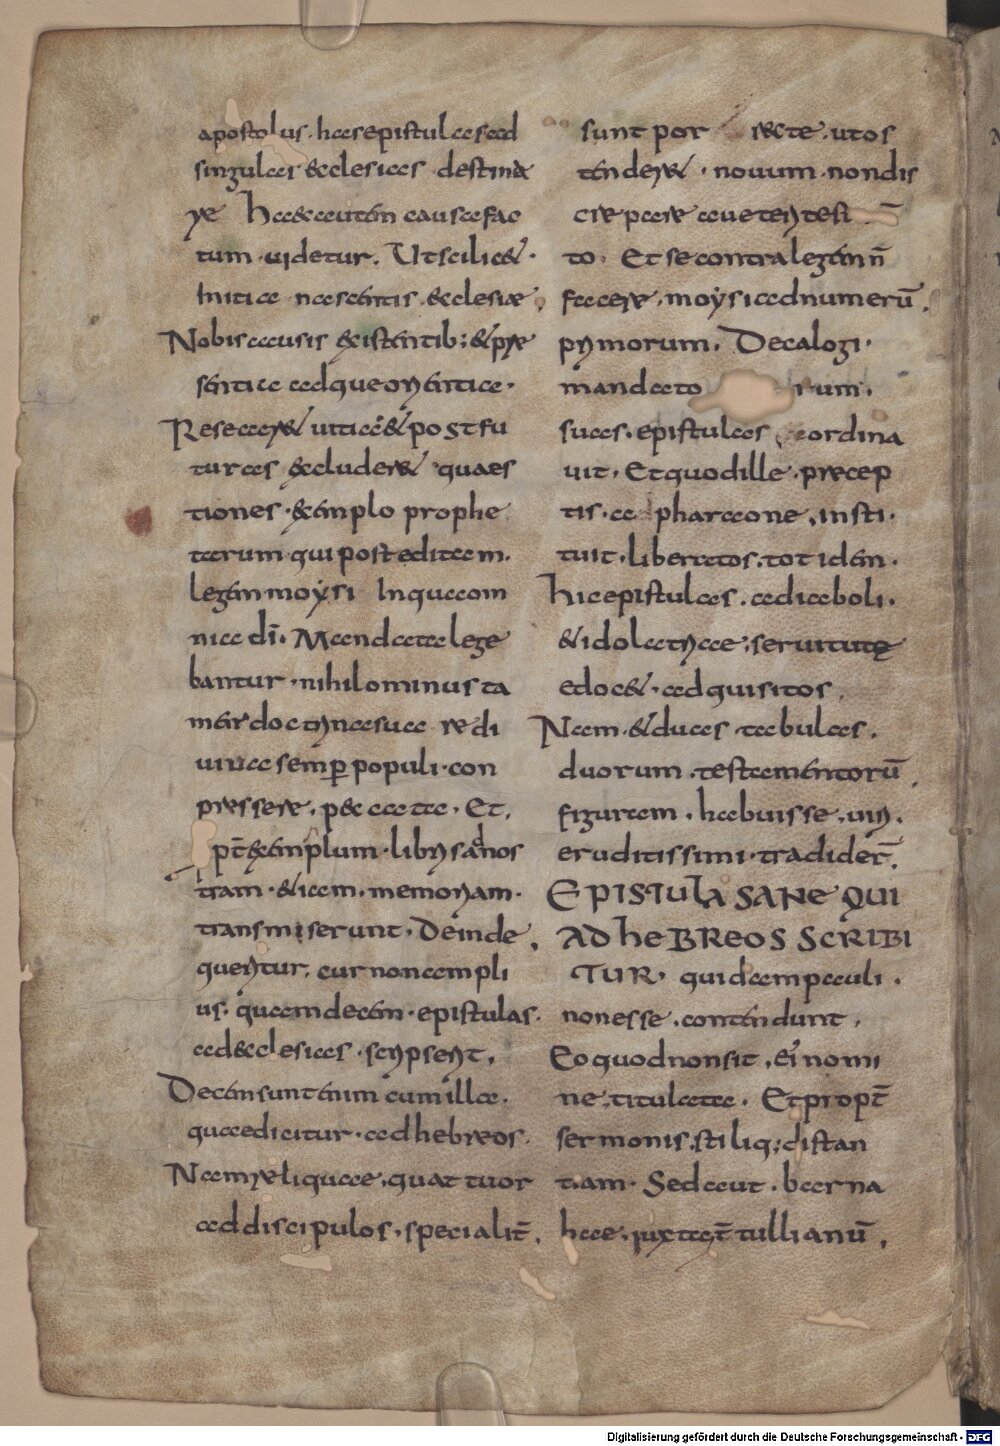 apostolus · has epistulas ad
singulas ecclesias destina
re Haec autem causa fac
tum · uidetur. Ut scilicet ·
Initia nascentis · ecclesiae,
Nobis causis existentib; & pre
sentia adque orientia ·
Resecaret uitia & post fu
turas excluderet quaes
tiones · exemplo prophe
tarum · qui post editam ·
legem moysi In qua om
nia di · Mandata lege
bantur · nihilominus ta
men doctrina sua redi
uiua semper populi · con
pressere · peccata · Et,
pt exemplum · libris ad nos
tram · etiam · memoriam ·
transmiserunt · Deinde,
queritur, cur non ampli
us · quam decem · epistulas ·
ad ecclesias · scripserit,
Decem sunt enim cum illa ·
quae dicitur · ad hebreos ·
Nam reliquae · quattuor
ad discipulos · specialit̄,
sunt por recte · ut os
tenderet · nouum · non dis
crepare a ueteri test
to · Et se contra legem n̄
facere, moysi ad numerū,
primorum. Decalogi ·
mandato rum,
suas · epistulas ordina
uit · Et quod ille · precep
tis · a pharaone, insti ·
tuit · liberatos · totidem ·
hic epistulas · a diaboli ·
& idolatriae, seruitute
edocet · adquisitos,
Nam · & duas tabulas,
duorum · testamentorū,
figuram · habuisse, uiri,
eruditissimi · tradider̄,
EPISTULA SANE QUI
AD HEBREOS SCRIBI
TUR · quidam pauli ·
non esse · contendunt,
Eo quod non sit, ei nomi
ne, titulata · Et propt̄
sermonis, stiliq; distan
tiam · Sed aut · barna
bae, iuxta qt̄ tullianū,
Digitalisierung gefördert durch die Deutsche Forschungsgemeinschaft - DFG